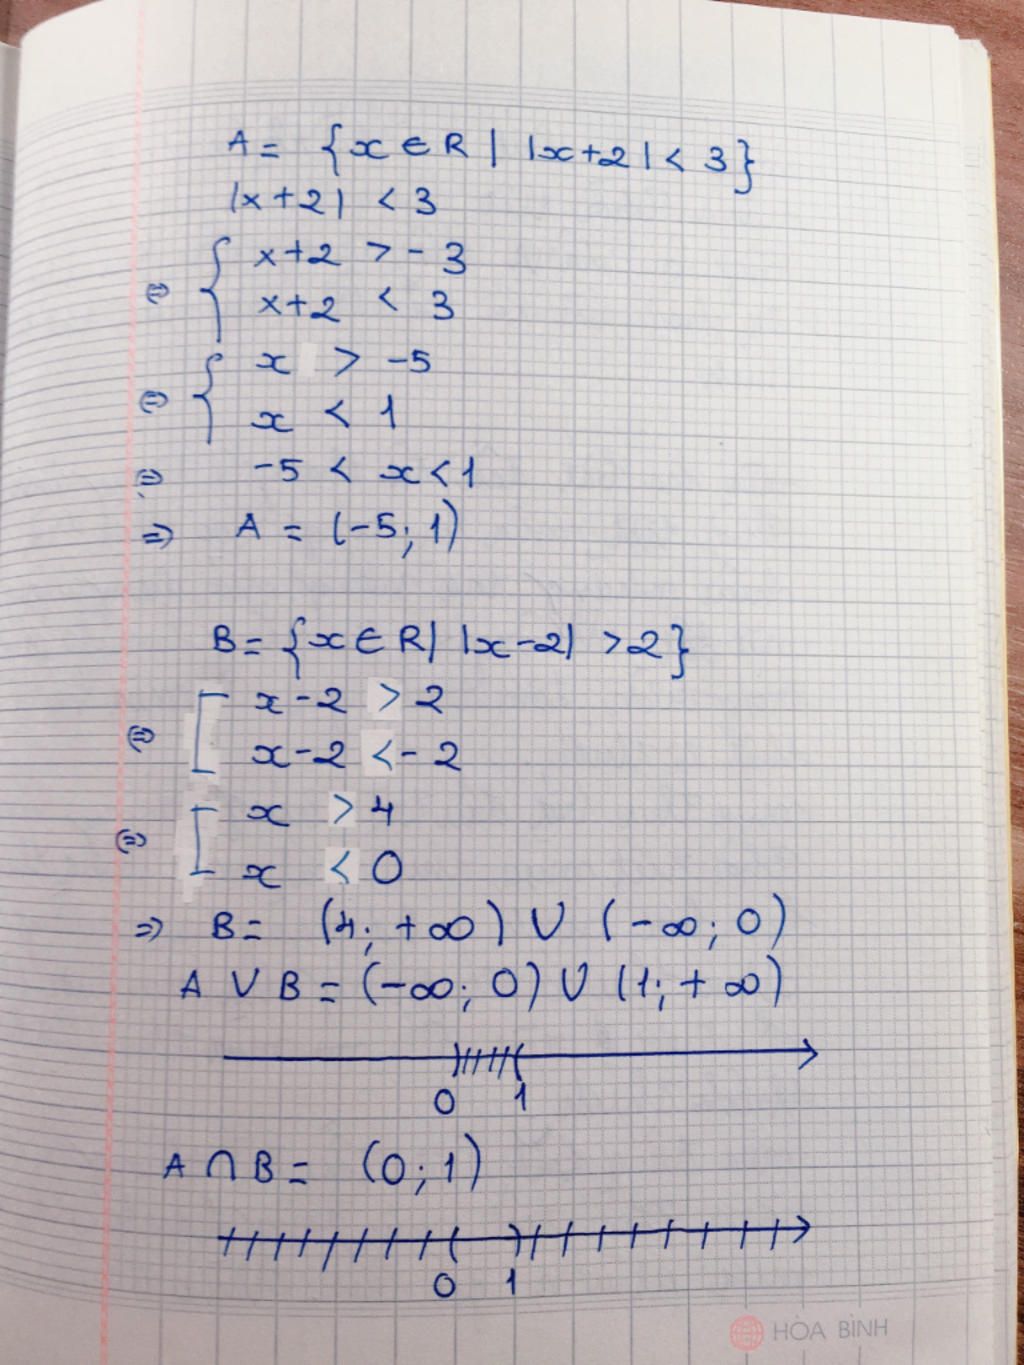 A = {x ∈ R | |x+2| < 3}
|x+2| < 3
x+2 > -3
⇔
x+2 < 3
x > -5
⇔
x < 1
⇔ -5 < x < 1
⇒ A = (-5; 1)
B = {x ∈ R | |x-2| > 2}
x-2 > 2
⇔
x-2 < -2
x > 4
⇔
x < 0
⇒ B = (4; +∞) ∪ (-∞; 0)
A ∪ B = (-∞; 0) ∪ (1; +∞)
0 1
A ∩ B = (0; 1)
0 1
HÒA BÌNH